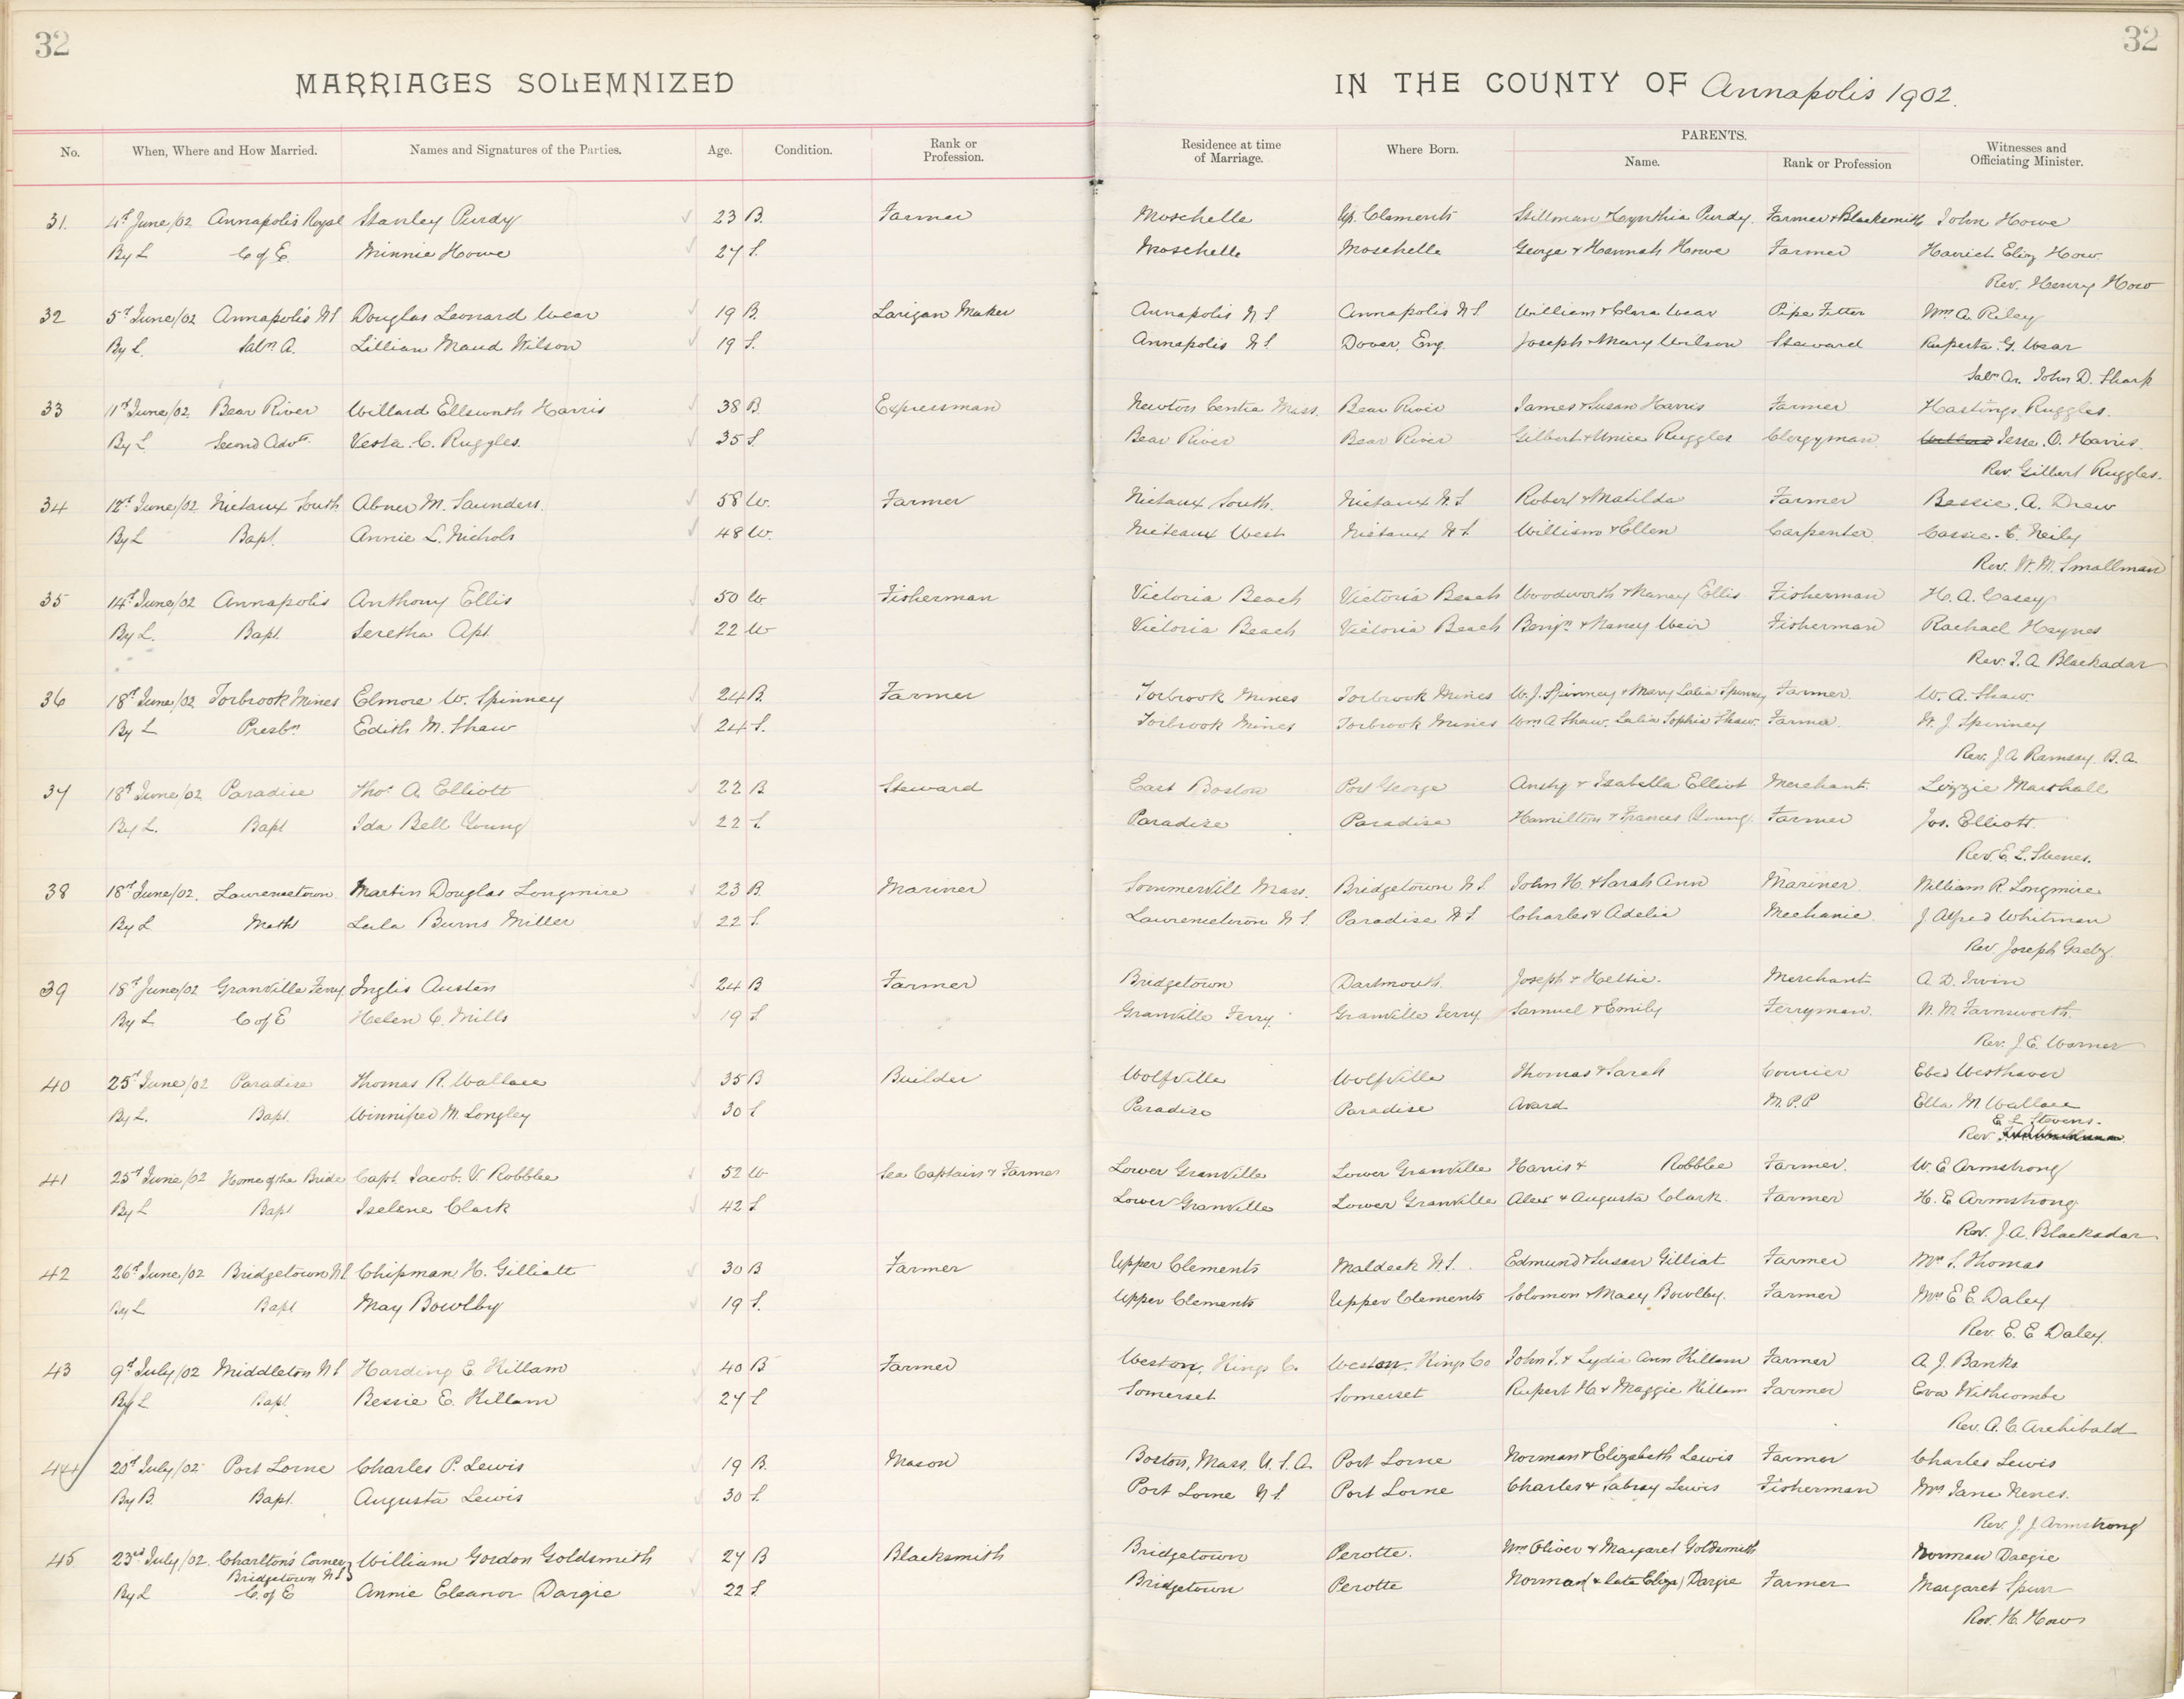 32 32
MARRIAGES SOLEMNIZED IN THE COUNTY OF Annapolis 1902.
No. When, Where and How Married. Names and Signatures of the Parties. Age. Condition. Rank or Profession. Residence at time of Marriage. Where Born. PARENTS. Name. Rank or Profession Witnesses and Officiating Minister.
31. 4th June/02 Annapolis Royal Stanley Purdy 23 B. Farmer Moschelle Up. Clements Stillman & Cynthia Purdy. Farmer & Blacksmith John Howe
By L C of E. Minnie Howe 27 S. Moschelle Moschelle George & Hannah Howe Farmer Harriet Eliz How
Rev. Henry How
32 5th June/02 Annapolis N S Douglas Leonard Wear 19 B. Larigan Maker Annapolis N S. Annapolis N S William & Clara Wear Pipe Fitter Wm A. Riley
By L. Salvn A. Lillian Maud Wilson 19 S. Annapolis N S. Dover, Eng. Joseph & Mary Wilson Steward Ruperta. G. Wear
Salvn Ar. John D. Sharp
33 11th June/02. Bear River Willard Ellsworth Harris 38 B. Expressman Newton Centre Mass. Bear River James & Susan Harris Farmer Hastings Ruggles.
By L Second Advt. Vesta. C. Ruggles. 35 S. Bear River Bear River Gilbert & Unice Ruggles Clergyman. Jesse. O. Harris.
Rev. Gilbert Ruggles.
34 12th June/02 Nictaux South Abner M. Saunders. 58 W. Farmer Nictaux South. Nictaux N. S Robert & Matilda Farmer Bessie. A. Drew
By L Bapt. Annie L. Nichols 48 W. Nicteaux West Nictaux N S. William & Ellen Carpenter. Cassie. C. Neily
Rev. W. M. Smallman
35 14th June/02 Annapolis Anthony Ellis 50 W Fisherman Victoria Beach Victoria Beach Woodworth & Nancy Ellis Fisherman H. A. Casey
By L. Bapt. Seretha Apt 22 W Victoria Beach Victoria Beach Benjn & Nancy Weir Fisherman Rachael Haynes
Rev. J. A. Blackadar
36 18th June/02 Torbrook Mines Elmore W. Spinney 24 B. Farmer Torbrook Mines Torbrook Mines W. J. Spinney & Mary Lalia Spinney Farmer. W. A. Shaw.
By L Presbn Edith M. Shaw 24 S. Torbrook Mines Torbrook Mines Wm. A Shaw. Lalia Sophia Shaw. Farmer. W. J Spinney
Rev. J. A Ramsay. B. A.
37 18th June/02 Paradise Thos A. Elliott 22 B. Steward East Boston Port George Ansty & Isabella Elliot Merchant. Lizzie Marshall
By L. Bapt Ida Bell Young 22 S. Paradise Paradise Hamilton & Frances Young. Farmer Jos. Elliott.
Rev. E. L. Steeves.
38 18th June/02. Lawrencetown. Martin Douglas Longmire 23 B. Mariner Sommerville Mass. Bridgetown N S. John H. & Sarah Ann Mariner. William R Longmire
By L Meth Lula Burns Miller 22 S. Lawrencetown N S. Paradise N S Charles & Adelia Mechanic. J. Alfred Whitman
Rev Joseph Gaetz.
39 18th June/02 Granville Ferry. Inglis Austen 24 B Farmer Bridgetown Dartmouth. Joseph & Hettie. Merchant A. D. Irvin
By L C of E Helen C. Mills 19 S. Granville Ferry. Granville Ferry. Samuel & Emily Ferryman. N. M. Farnsworth.
Rev. J. E. Warner
40 25th June/02 Paradise Thomas R. Wallace 35 B Builder Wolfville Wolfville Thomas & Sarah Courier Ebed Westhaver
By L. Bapt. Winnifred M. Longley 30 S Paradise Paradise Avard M. P. P Ella M Wallace
E. L. Stevens.
Rev.
41 25th June/02 Home of the Bride Capt. Jacob. V. Robblee 52 W Sea Captain & Farmer Lower Granville Lower Granville Harris & Robblee Farmer. W. E Armstrong
By L Bapt Iselene Clark 42 S Lower Granville Lower Granville Alex & Augusta Clark. Farmer H. E Armstrong.
Rev. J. A. Blackadar
42 26th June/02 Bridgetown N S Chipman H. Gilliatt 30 B Farmer Upper Clements Maldeck N. S. Edmund & Susan Gilliat Farmer Mrs S. Thomas
By L Bapt May Bowlby 19 S. Upper Clements Upper Clements Solomon & Macy Bowlby. Farmer Mrs E E Daley
Rev. E. E Daley.
43 9th July/02 Middleton N S Harding E Killam 40 B Farmer Weston, Kings C. Weston, Kings Co John I. & Lydia Ann Killam Farmer A. J. Banks
By L Bapt Bessie E. Killam 27 S Somerset Somerset Rupert H. & Maggie Killam Farmer Eva Withcombe
Rev. A. C. Archibald
44 20th July/02 Port Lorne Charles P. Lewis 19 B. Mason Boston, Mass. U. S. A. Port Lorne Norman & Elizabeth Lewis Farmer Charles Lewis
By B. Bapt. Augusta Lewis 30 S. Port Lorne N S. Port Lorne Charles & Sabray Lewis Fisherman Mrs Jane Neves.
Rev. J. J Armstrong
45. 23rd July/02. Charlton's Corner, William Gordon Goldsmith 27 B Blacksmith Bridgetown Perotte. Wm Oliver & Margaret Goldsmith Norman Dargie
Bridgetown N S
By L C. of E Annie Eleanor Dargie 22 S. Bridgetown Perotte Norman (& late Eliza) Dargie Farmer Margaret Spurr
Rev. H. How